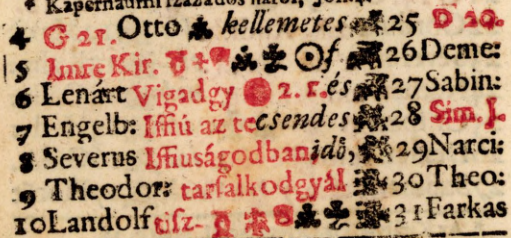 * Kapernaumi százados
4 G 21. Otto kellemetes 25 D 20.
5 Imre Kir. 26 Deme:
6 Lenárt Vigadgy 2. r. és 27 Sabin:
7 Engelb: Iffiú az te csendes 28 Sim. J.
8 Severus Iffiuságodban, idő, 29 Narci:
9 Theodor: tarſalkodgyál 30 Theo:
10 Landolf tisz- 31 Farkas